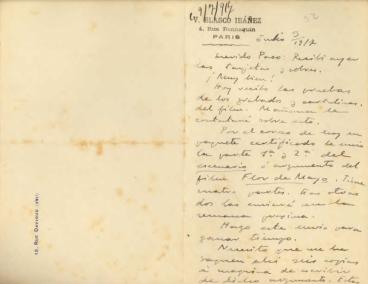 9/7/917
52
V. BLASCO IBÁÑEZ
4, Rue Rennequin
PARIS
Julio 9
1917
Querido Paso: Recibí ayer
las tarjetas y sobres.
¡Muy bien!
Hoy recibo las pruebas
de los grabados y cartelinas
del film. Mañana le
contestaré sobre esto.
Por el correo de hoy en
paquete certificado le envío
la parte 1ª y 2ª del
escenario o argumento del
film Flor de Mayo. Tiene
cuatro partes. Las otras
dos las enviaré en la
semana próxima.
Hago este envío para
ganar tiempo.
Necesito que me
saquen ahí seis copias
a máquina de escribir
de dicho argumento. Estas